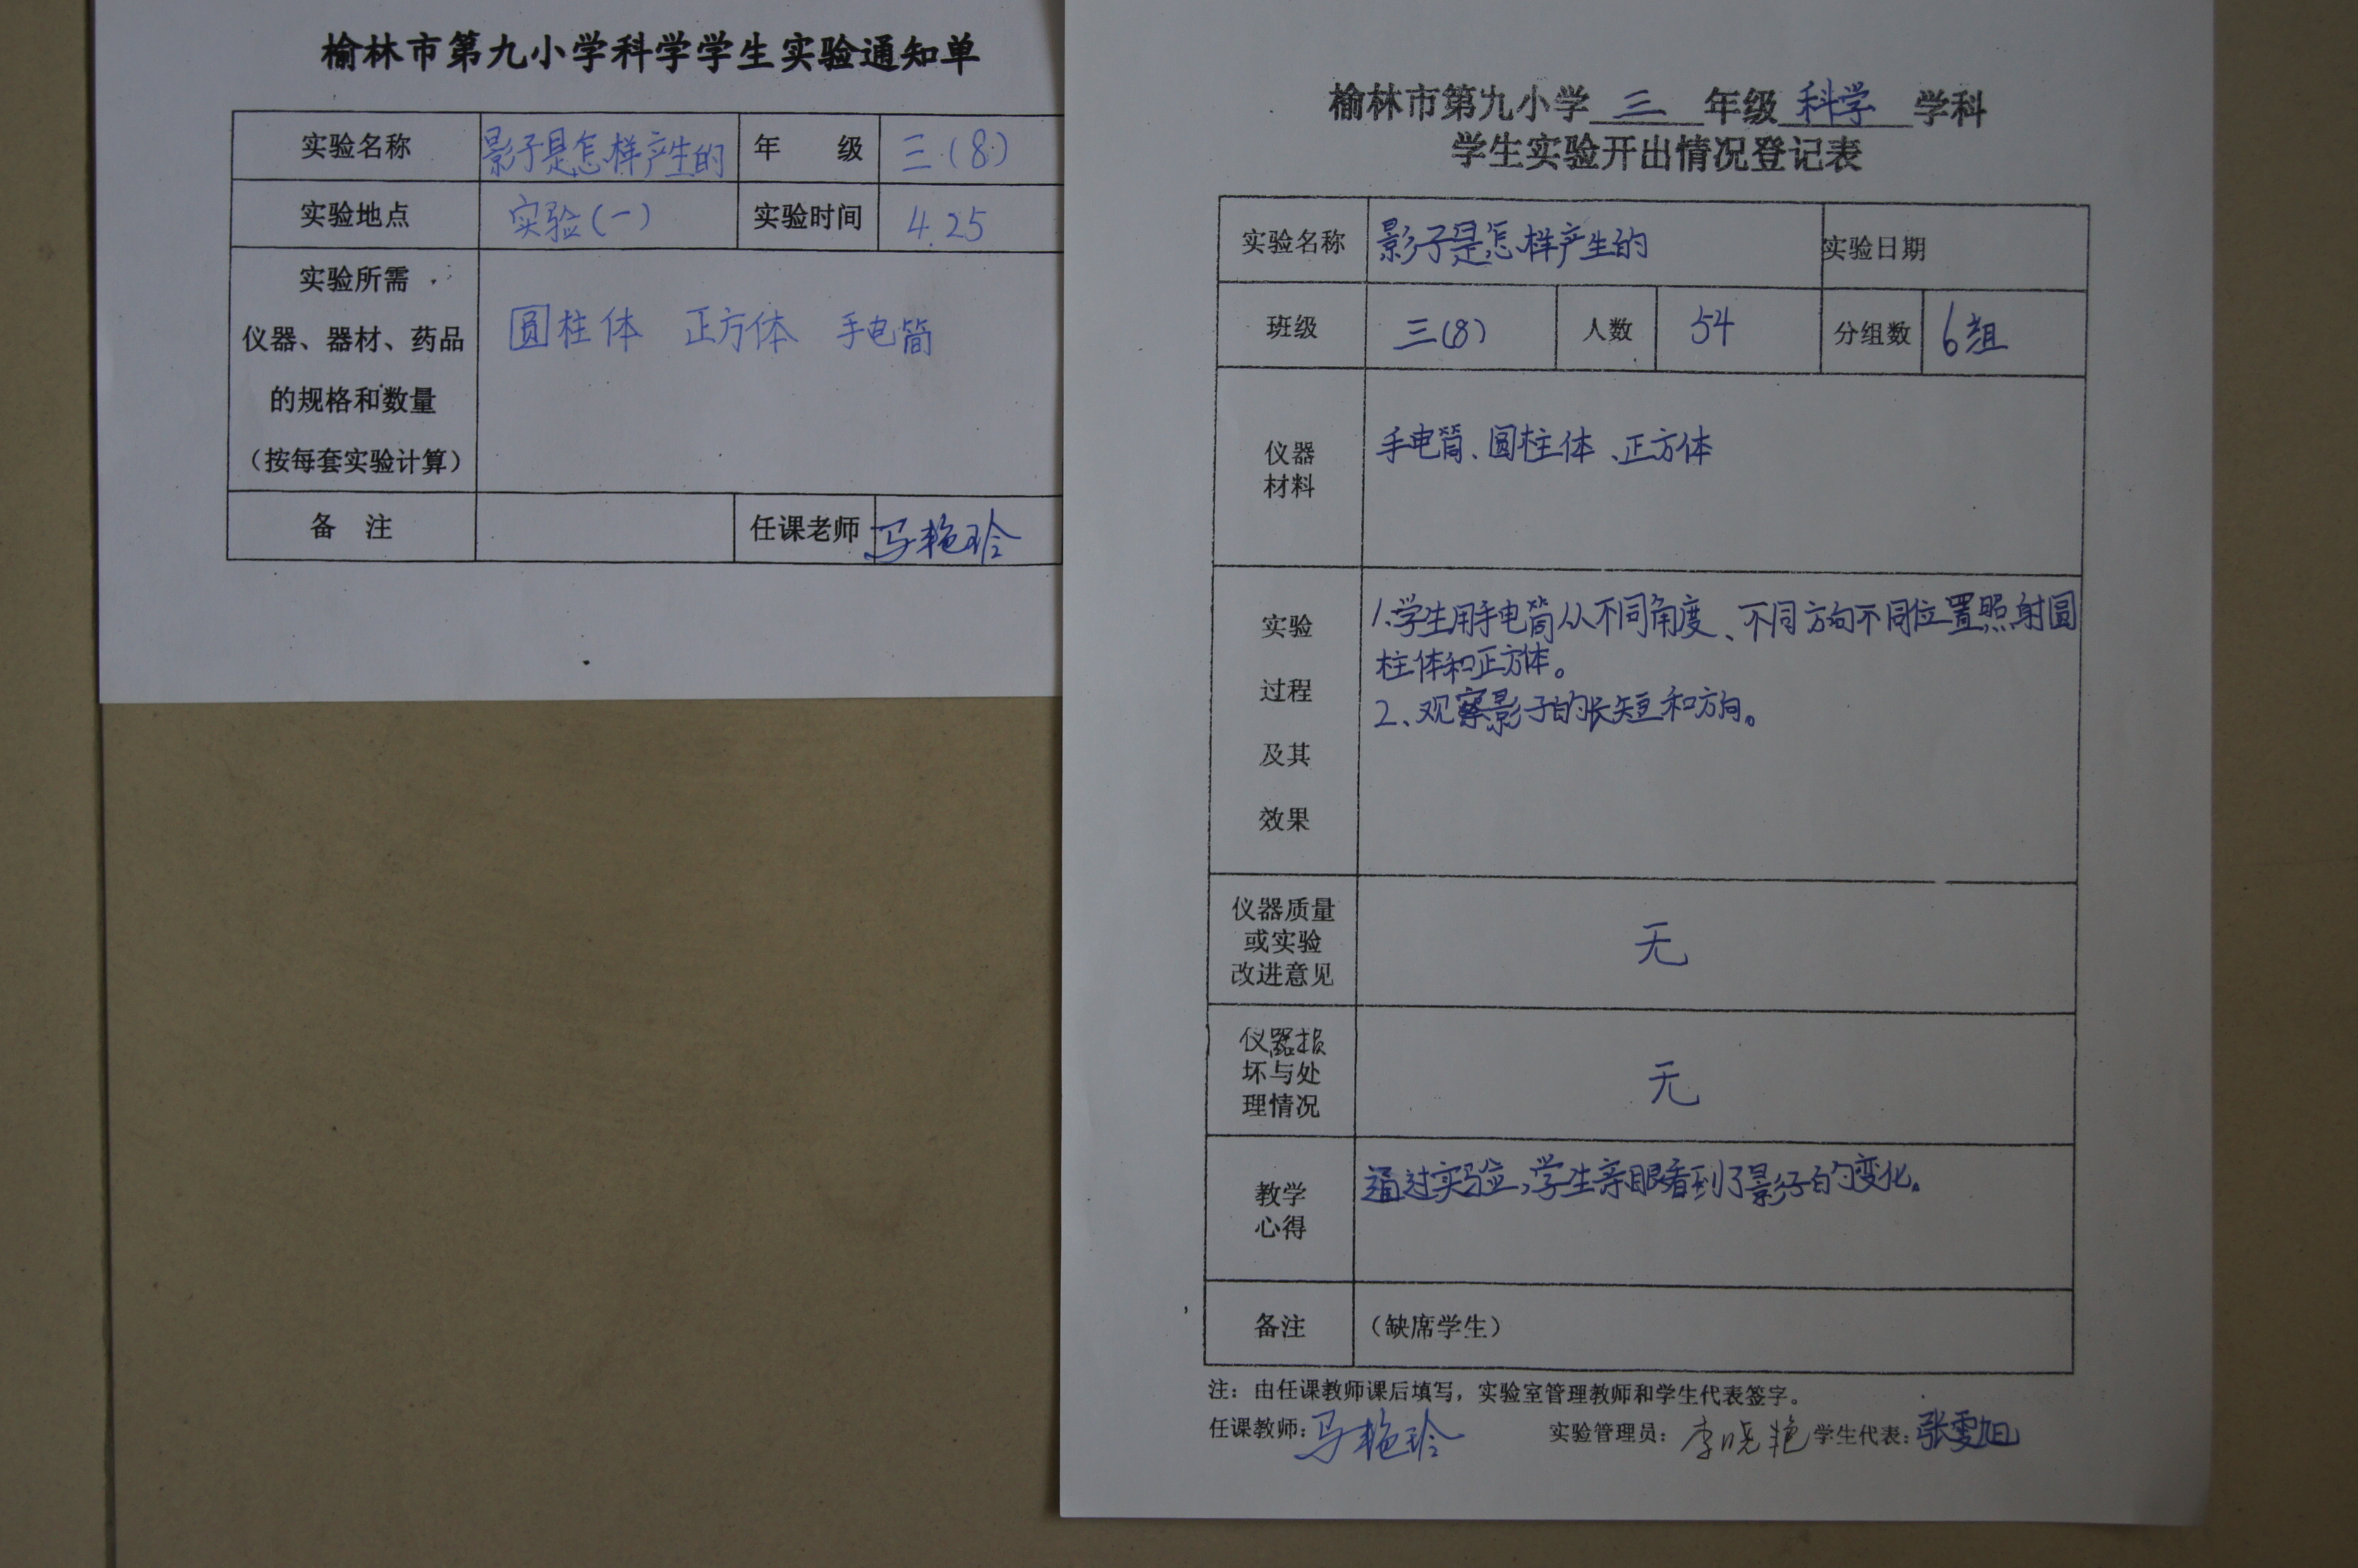 榆林市第九小学科学学生实验通知单
实验名称 影子是怎样产生的 年 级 三(8)
实验地点 实验(一) 实验时间 4.25
实验所需
仪器、器材、药品
的规格和数量
(按每套实验计算)
圆柱体 正方体 手电筒
备 注 任课老师 马艳玲
榆林市第九小学 三 年级 科学 学科
学生实验开出情况登记表
实验名称 影子是怎样产生的 实验日期
班级 三(8) 人数 54 分组数 6组
仪器
材料
手电筒、圆柱体、正方体
实验
过程
及其
效果
1、学生用手电筒从不同角度、不同方向不同位置照射圆
柱体和正方体。
2、观察影子的长短和方向。
仪器质量
或实验
改进意见
无
仪器损
坏与处
理情况
无
教学
心得
通过实验,学生亲眼看到了影子的变化。
备注 (缺席学生)
注：由任课教师课后填写，实验室管理教师和学生代表签字。
任课教师：马艳玲 实验管理员：李晓艳 学生代表：张雯旭